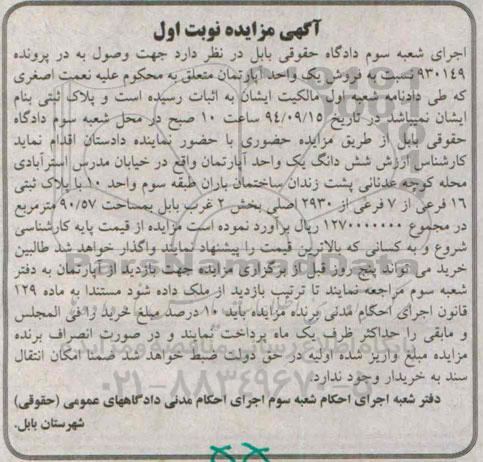 آگهی مزایده نوبت اول
اجرای شعبه سوم دادگاه حقوقی بابل در نظر دارد جهت وصول به در پرونده
۹۳۰۱۴۹ نسبت به فروش یک واحد آپارتمان متعلق به محکوم علیه نعمت اصغری
که طی دادنامه شعبه اول مالکیت ایشان به اثبات رسیده است و پلاک ثبتی بنام
ایشان نمیباشد در تاریخ ۹۴/۰۹/۱۵ ساعت ۱۰ صبح در محل شعبه سوم دادگاه
حقوقی بابل از طریق مزایده حضوری با حضور نماینده دادستان اقدام نماید
کارشناس ارزش شش دانگ یک واحد آپارتمان واقع در خیابان مدرس استرآبادی
محله کوچه عدنانی پشت زندان ساختمان باران طبقه سوم واحد ۱۰ با پلاک ثبتی
۱۶ فرعی از ۷ فرعی از ۲۹۳۰ اصلی بخش ۲ غرب بابل بمساحت ۹۰/۵۷ مترمربع
در مجموع ۱۲۷۰۰۰۰۰۰۰ ریال برآورد نموده است مزایده از قیمت پایه کارشناسی
شروع و به کسانی که بالاترین قیمت را پیشنهاد نمایند واگذار خواهد شد طالبین
خرید می تواند پنج روز قبل از برگزاری مزایده جهت بازدید از آپارتمان به دفتر
شعبه سوم مراجعه نمایند تا ترتیب بازدید از ملک داده شود مستندا به ماده ۱۲۹
قانون اجرای احکام مدنی برنده مزایده باید ۱۰ درصد مبلغ خرید را فی المجلس
و مابقی را حداکثر ظرف یک ماه پرداخت نمایند و در صورت انصراف برنده
مزایده مبلغ واریز شده اولیه در حق دولت ضبط خواهد شد ضمنا امکان انتقال
سند به خریدار وجود ندارد.
دفتر شعبه اجرای احکام شعبه سوم اجرای احکام مدنی دادگاههای عمومی (حقوقی)
شهرستان بابل.
ParsNamadData